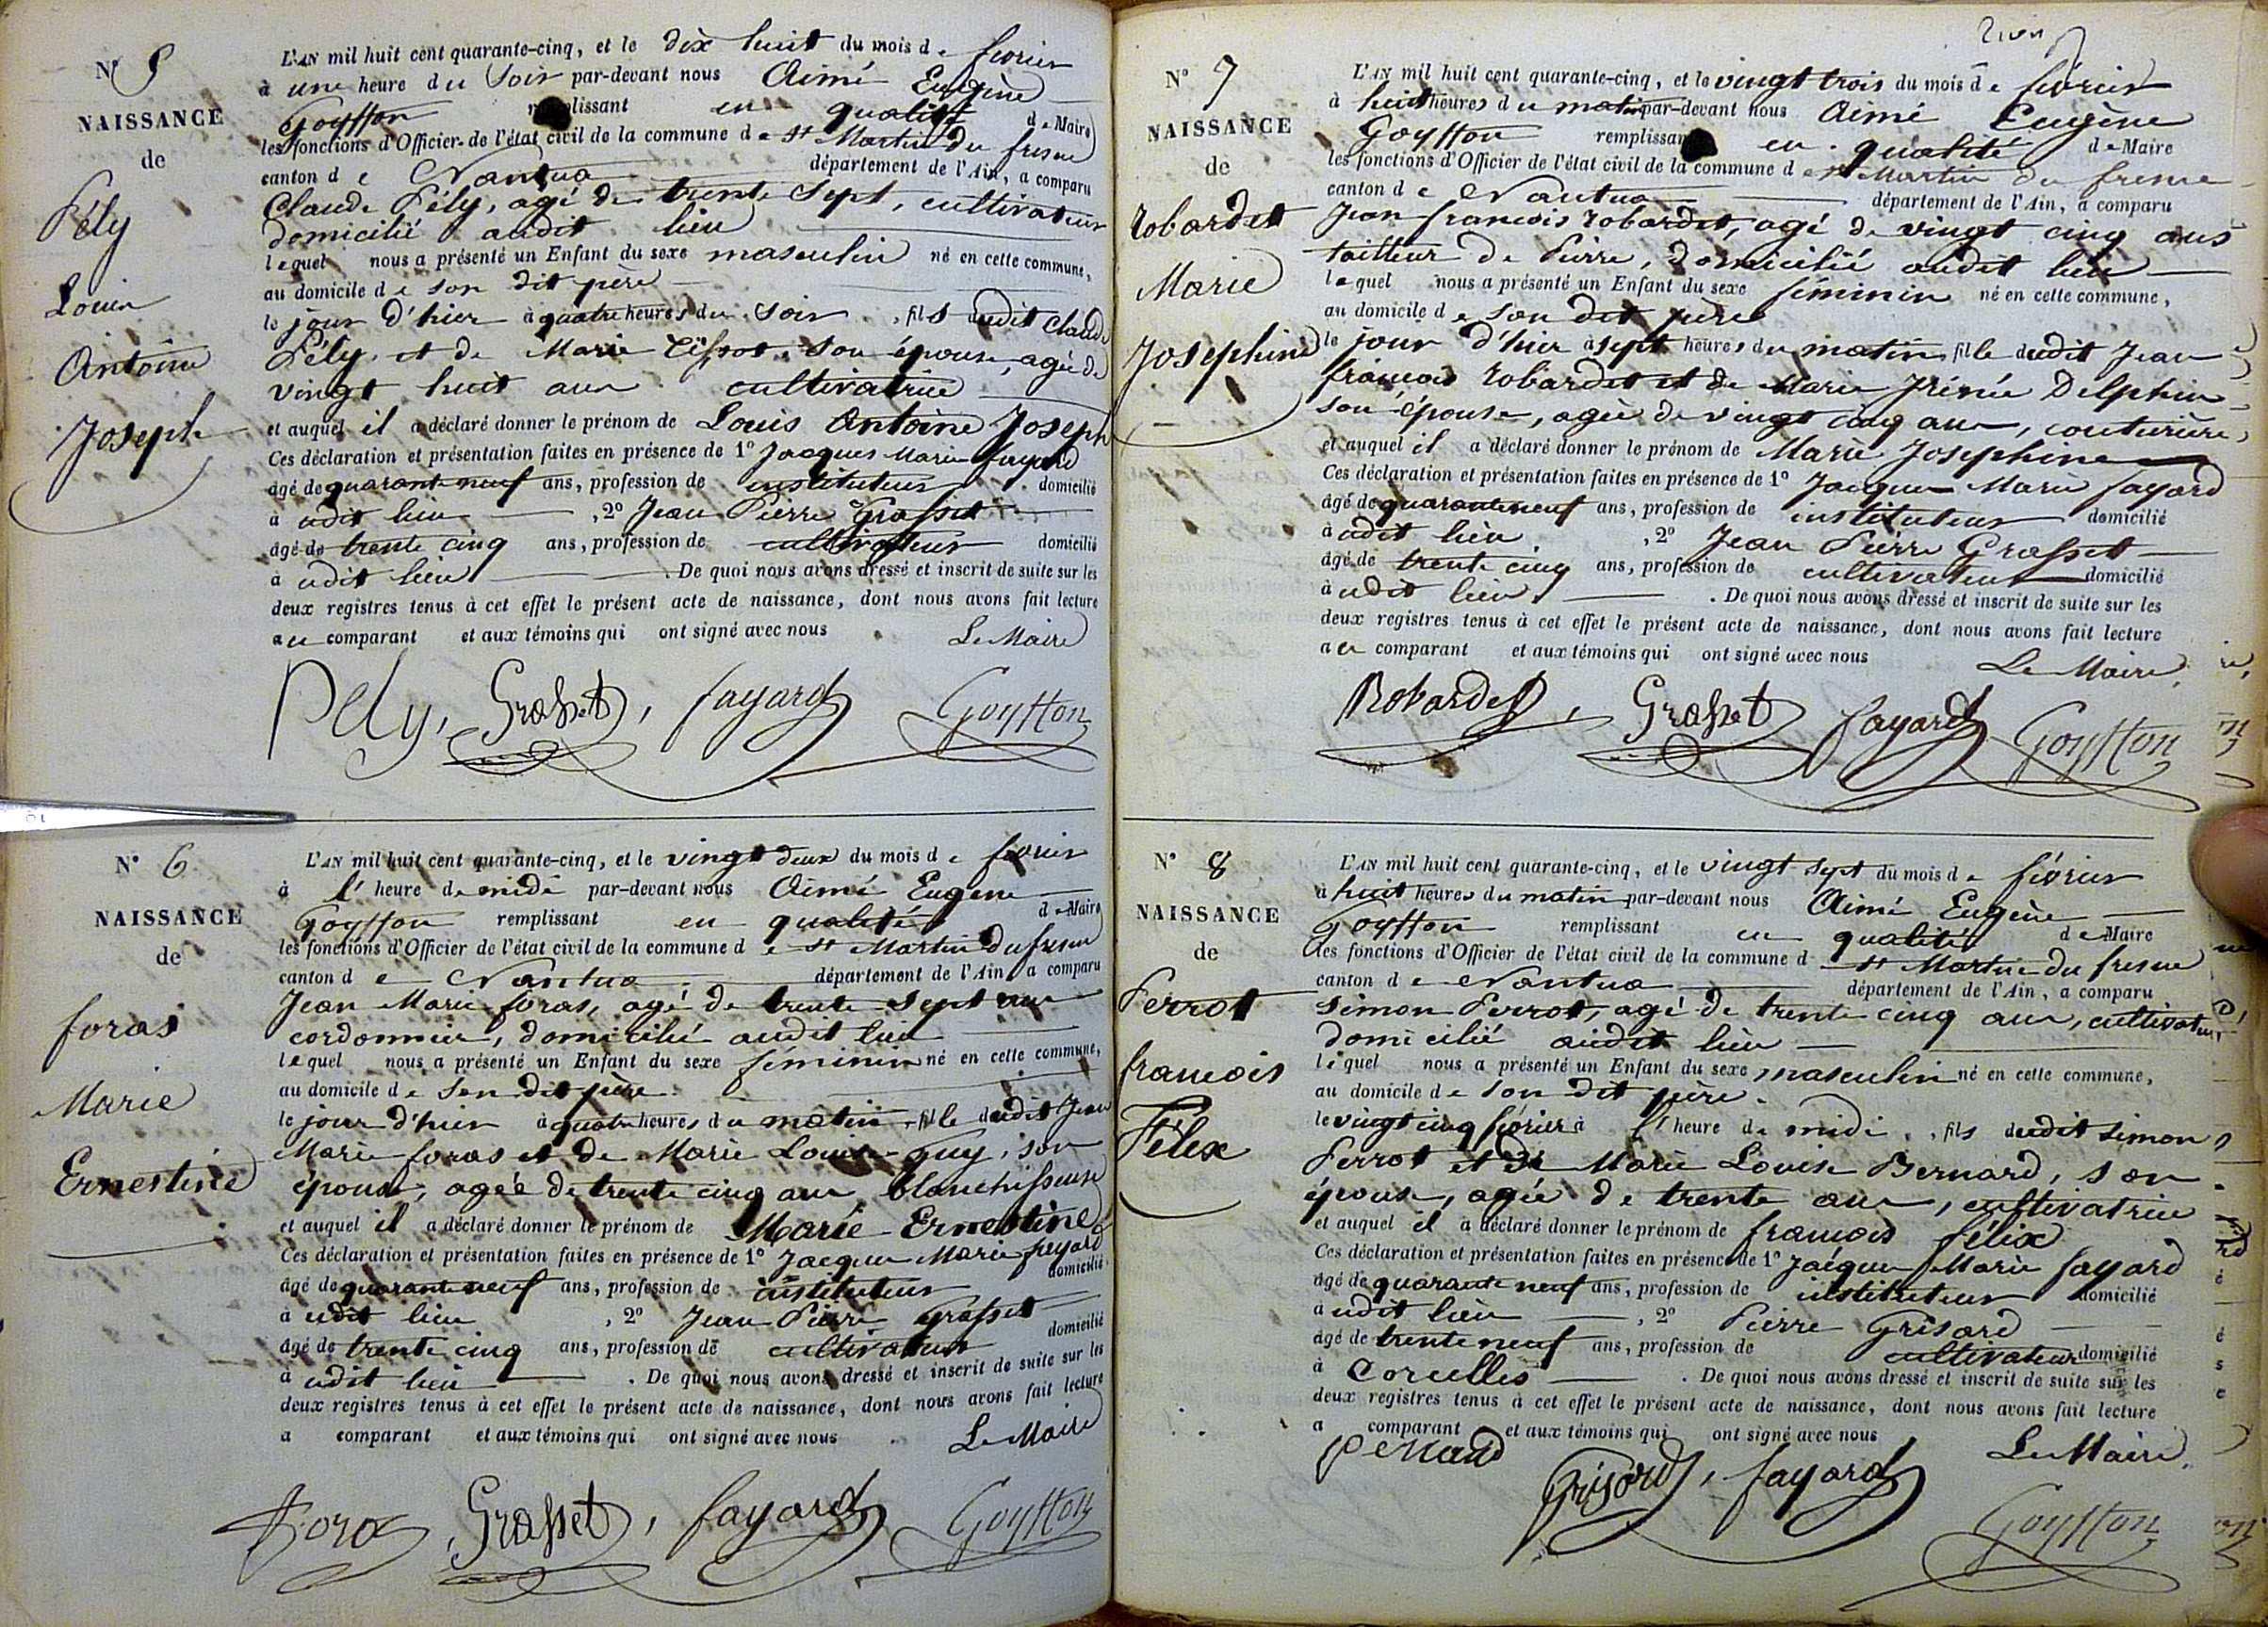 N° 5
NAISSANCE
de
Pély
Louis
Antoine
Joseph
L'AN mil huit cent quarante-cinq, et le dix huit du mois de fevrier
à une heure du soir par-devant nous Aimé Eugène
Goyffon remplissant en qualité de Maire
les fonctions d'Officier de l'état civil de la commune de St Martin du fresne
canton de Nantua département de l'Ain, a comparu
Claude Pély, agé de trente sept, cultivateur
domicilié audit lieu
lequel nous a présenté un Enfant du sexe masculin né en cette commune,
au domicile de son dit père
le jour d'hier à quatre heures du soir, fils dudit Claude
Pély et de Marie Tissot, son épouse, agée de
vingt huit ans cultivatrice
et auquel il a déclaré donner le prénom de Louis Antoine Joseph
Ces déclaration et présentation faites en présence de 1° Jacques Marie fayard
âgé de quarante neuf ans, profession de instituteur domicilié
à udit lieu, 2° Jean Pierre Grasset
âgé de trente cinq ans, profession de cultivateur domicilié
à udit lieu. De quoi nous avons dressé et inscrit de suite sur les
deux registres tenus à cet effet le présent acte de naissance, dont nous avons fait lecture
au comparant et aux témoins qui ont signé avec nous Le Maire
Pely, Grasset, fayard Goyffon
N° 6
NAISSANCE
de
foras
Marie
Ernestine
L'AN mil huit cent quarante-cinq, et le vingt deux du mois de fevrier
à l'heure de midi par-devant nous Aimé Eugene
Goyffon remplissant en qualité de Maire
les fonctions d'Officier de l'état civil de la commune de St Martin du fresne
canton de Nantua département de l'Ain, a comparu
Jean Marie foras, agé de trente sept ans
cordonnier, domicilié audit lieu
lequel nous a présenté un Enfant du sexe féminin né en cette commune,
au domicile de son dit père
le jour d'hier à quatre heures du matin, fille dudit Jean
Marie foras et de Marie Louise Guy, son
épouse, agée de trente cinq ans blanchisseuse
et auquel il a déclaré donner le prénom de Marie Ernestine
Ces déclaration et présentation faites en présence de 1° Jacques Marie fayard
âgé de quarante neuf ans, profession de instituteur domicilié
à udit lieu, 2° Jean Pierre Grasset
âgé de trente cinq ans, profession de cultivateur domicilié
à udit lieu. De quoi nous avons dressé et inscrit de suite sur les
deux registres tenus à cet effet le présent acte de naissance, dont nous avons fait lecture
a comparant et aux témoins qui ont signé avec nous Le Maire
foras, Grasset, fayard Goyffon
N° 7
NAISSANCE
de
Robardet
Marie
Josephine
L'AN mil huit cent quarante-cinq, et le vingt trois du mois de févrie​r
à huit heures du matin par-devant nous Aimé Eugène
Goyffon remplissant en qualité de Maire
les fonctions d'Officier de l'état civil de la commune de St Martin du fresne
canton de Nantua département de l'Ain, a comparu
Jean francois Robardet, agé de vingt cinq ans
tailleur de Pierre, domicilié audit lieu
lequel nous a présenté un Enfant du sexe féminin né en cette commune,
au domicile de son dit père
le jour d'hier à sept heures du matin fille dudit Jean
francois Robardet et de Marie Irénée Delphin
son épouse, agée de vingt cinq ans, couturière,
et auquel il a déclaré donner le prénom de Marie Josephine
Ces déclaration et présentation faites en présence de 1° Jacques Marie fayard
âgé de quarante neuf ans, profession de instituteur domicilié
à udit lieu, 2° Jean Pierre Grasset
âgé de trente cinq ans, profession de cultivateur domicilié
à udit lieu. De quoi nous avons dressé et inscrit de suite sur les
deux registres tenus à cet effet le présent acte de naissance, dont nous avons fait lecture
au comparant et aux témoins qui ont signé avec nous Le Maire,
Robardet, Grasset fayard Goyffon
N° 8
NAISSANCE
de
Perrot
francois
Félix
L'AN mil huit cent quarante-cinq, et le vingt sept du mois de février
à huit heures du matin par-devant nous Aimé Eugène
Goyffon remplissant en qualité de Maire
les fonctions d'Officier de l'état civil de la commune d St Martin du fresne
canton de Nantua département de l'Ain, a comparu
Simon Perrot, agé de trente cinq ans, cultivateur
domicilié audit lieu
lequel nous a présenté un Enfant du sexe masculin né en cette commune,
au domicile de son dit père.
le vingt cinq février à l'heure de midi, fils dudit Simon
Perrot et de Marie Louise Bernard, son
épouse, agée de trente ans, cultivatrice
et auquel il a déclaré donner le prénom de francois félix
Ces déclaration et présentation faites en présence de 1° Jacques Marie fayard
âgé de quarante neuf ans, profession de instituteur domicilié
à udit lieu, 2° Pierre Grisard
âgé de trente neuf ans, profession de cultivateur domicilié
à Corcelles. De quoi nous avons dressé et inscrit de suite sur les
deux registres tenus à cet effet le présent acte de naissance, dont nous avons fait lecture
a comparant et aux témoins qui ont signé avec nous Le Maire.
Grisard, fayard
Goyffon